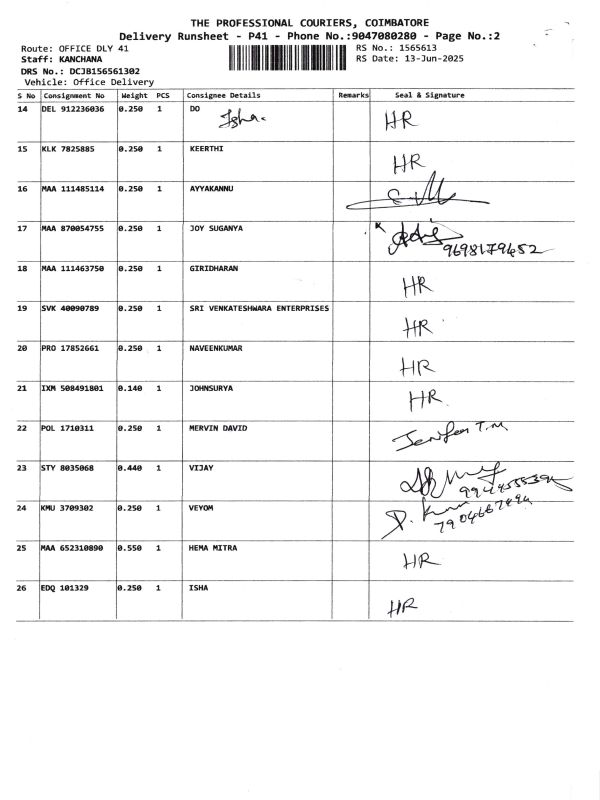 THE PROFESSIONAL COURIERS, COIMBATORE
Delivery Runsheet - P41 - Phone No.:9047080280 - Page No.:2
Route: OFFICE DLY 41 RS No.: 1565613
Staff: KANCHANA RS Date: 13-Jun-2025
DRS No.: DCJB156561302
Vehicle: Office Delivery
S No Consignment No Weight PCS Consignee Details Remarks Seal & Signature
14 DEL 912236036 0.250 1 DO HR
Isha
15 KLK 7825885 0.250 1 KEERTHI HR
16 MAA 111485114 0.250 1 AYYAKANNU
17 MAA 870054755 0.250 1 JOY SUGANYA
9698179452
18 MAA 111463750 0.250 1 GIRIDHARAN HR
19 SVK 40090789 0.250 1 SRI VENKATESHWARA ENTERPRISES HR
20 PRO 17852661 0.250 1 NAVEENKUMAR HR
21 IXM 508491801 0.140 1 JOHNSURYA HR
22 POL 1710311 0.250 1 MERVIN DAVID T.M
23 STY 8035068 0.440 1 VIJAY
24 KMU 3709302 0.250 1 VEYOM
25 MAA 652310890 0.550 1 HEMA MITRA HR
26 EDQ 101329 0.250 1 ISHA HR